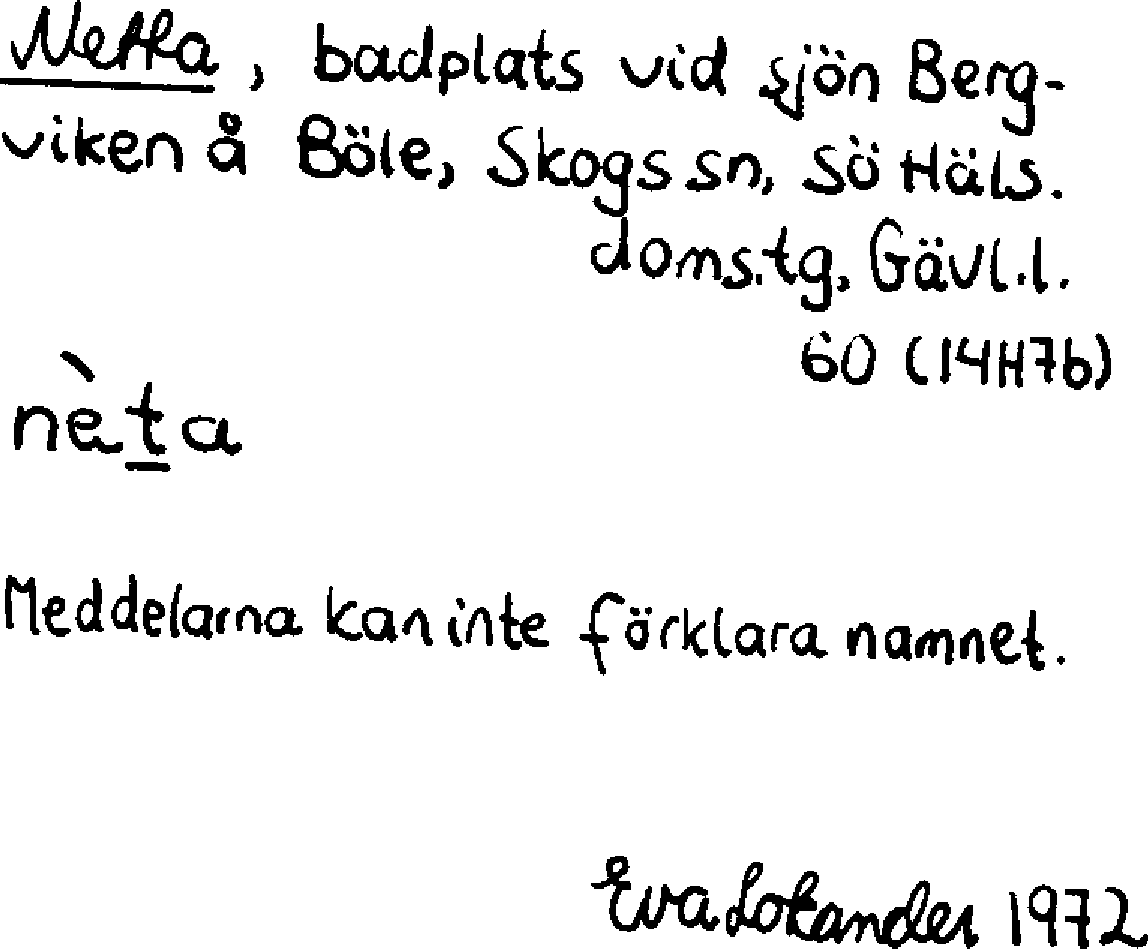 Netta, badplats vid sjön Berg-
viken å Böle, Skogs sn, Sö Häls.
doms.tg, Gävl.l.
60 (14H7b)
nèta
Meddelarna kan inte förklara namnet.
Eva Lokander 1972